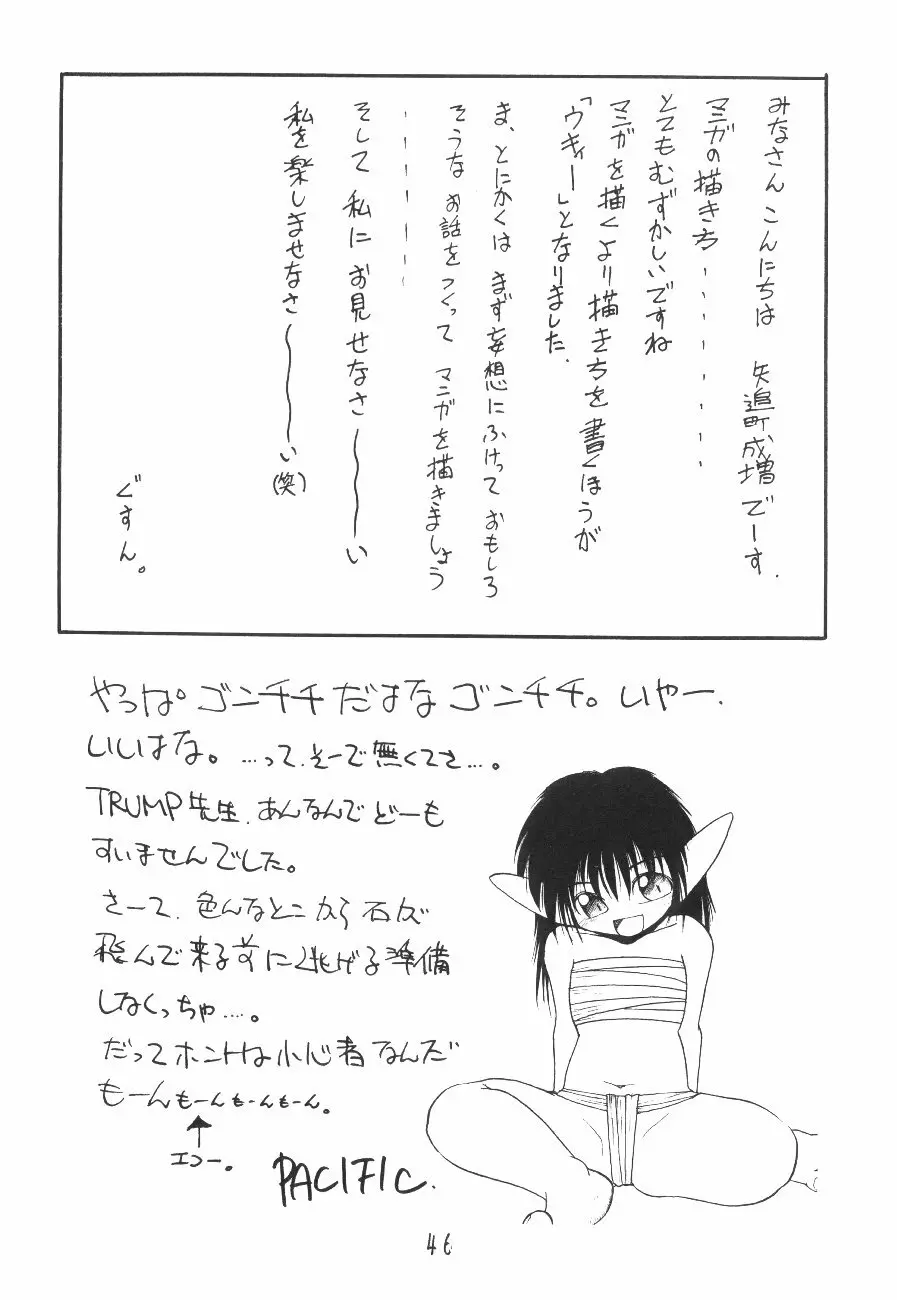 みなさん こんにちは 矢追町成増でーす.
マンガの描き方、、、、、、、、
とてもむずかしいですね
マンガを描くより描き方を書くほうが
「ウキィー」となりました.
ま、とにかくは まず妄想にふけって おもしろ
そうな お話をつくって マンガを描きましょう
、、、、、、、
そして 私に お見せなさ〜〜い
私を楽しませなさ〜〜い(笑)
ぐすん。
やっぱ。ゴンチチだはな ゴンチチ。いやー.
いいはな。…って、そーで無くてさ…。
TRUMP先生、あんなんで どーも
すいませんでした。
さーて、色んなとこから石が
飛んで来る前に逃げる準備
しなくっちゃ…。
だってホントは小心者なんだ
もーんもーんもーんもーん。
↑
エコー。
PACIFIC.
46